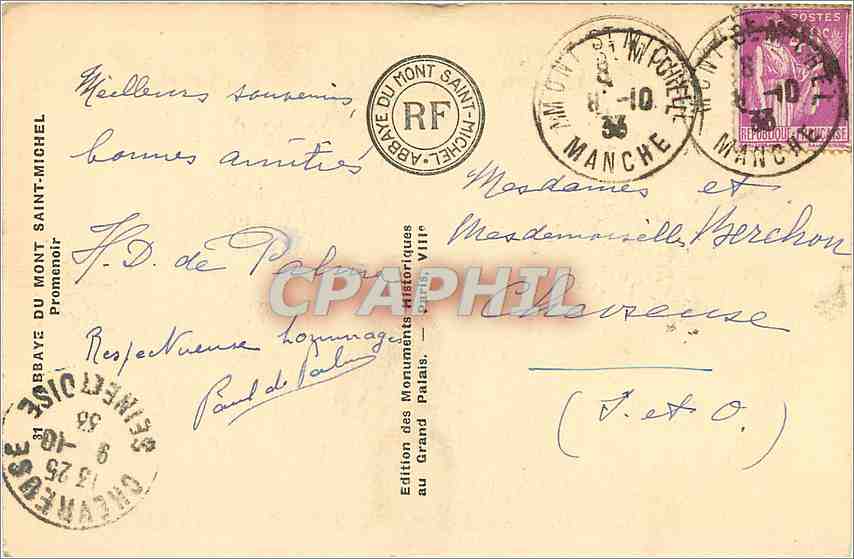 31 ABBAYE DU MONT SAINT-MICHEL
Promenoir
Meilleurs souvenirs,
bonnes amitiés
H. D. de Palma
Respectueuse hommages
Paul de Palma
ABBAYE DU MONT SAINT-MICHEL
RF
MONT ST MICHEL
8 -10
33
MANCHE
MONT ST MICHEL
8 -10
33
MANCHE
POSTES
REPUBLIQUE FRANÇAISE
Mesdames et
Mesdemoiselles Berchon
Chevreuse
(S. et O.)
Edition des Monuments Historiques
au Grand Palais. — Paris, VIIIe
CHEVREUSE
13 25
9 -10
33
SEINE ET OISE
CPAPHIL